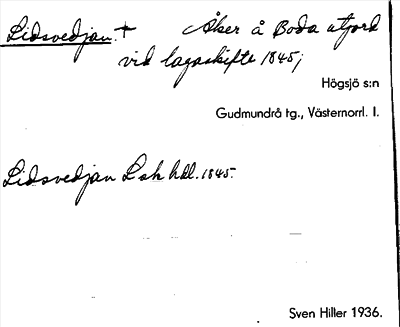 Lidsvedjan. † Åker å Boda utjord
vid lagaskifte 1845;
Högsjö s:n
Gudmundrå tg., Västernorrl. l.
Lidsvedjan Lsk hdl. 1845.
Sven Hiller 1936.